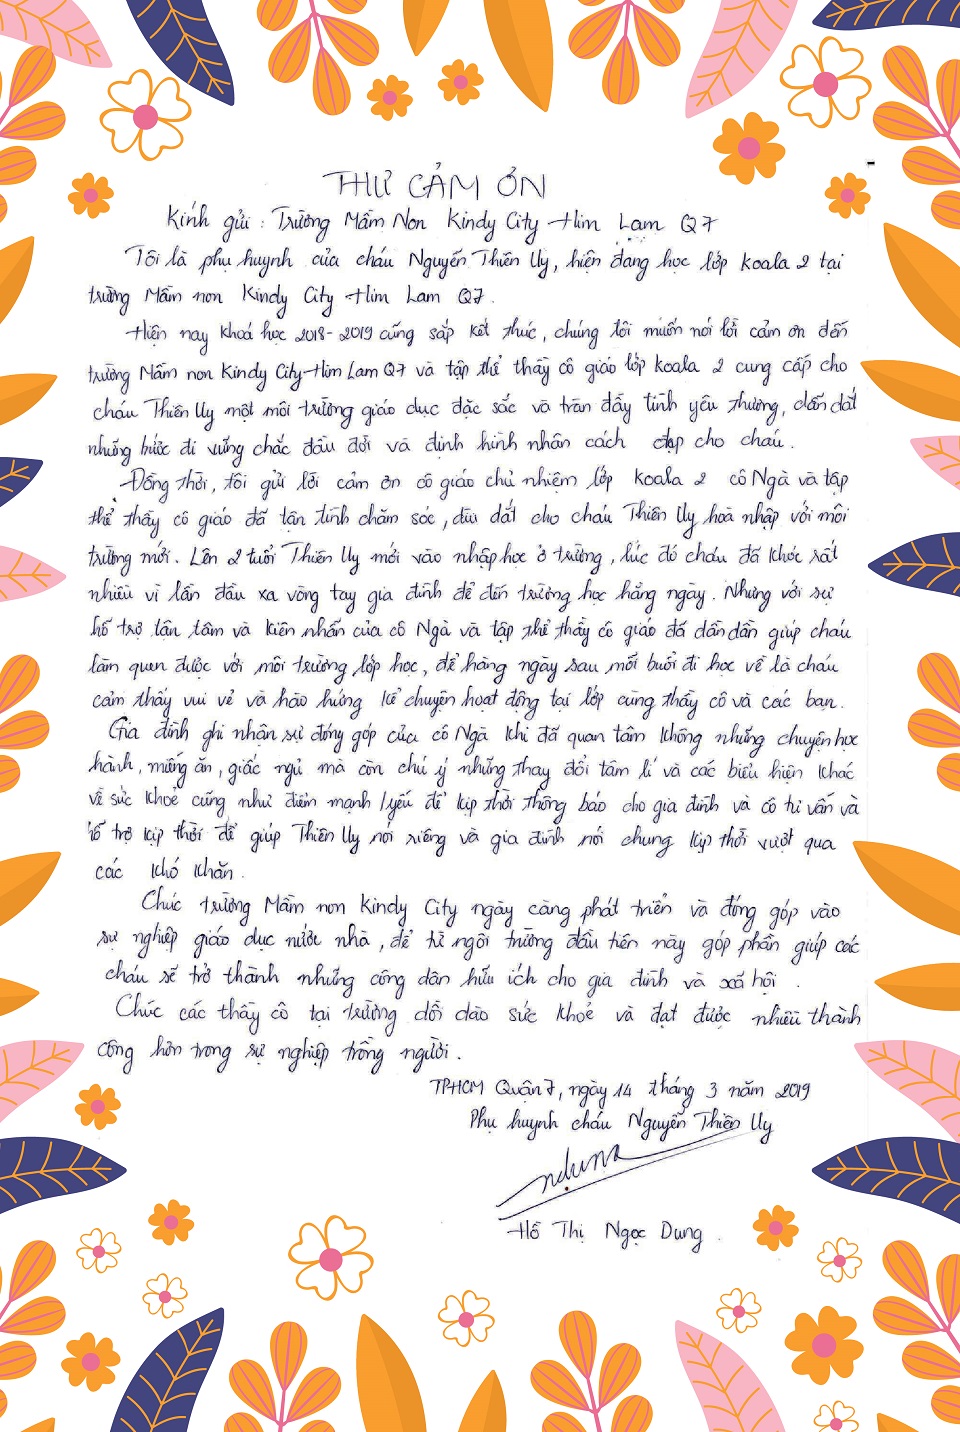 THƯ CẢM ƠN
Kính gửi : Trường Mầm Non Kindy City Him Lam Q7
Tôi là phụ huynh của cháu Nguyễn Thiên Uy, hiện đang học lớp Koala 2 tại
trường Mầm non Kindy City Him Lam Q7.
Hiện nay khoá học 2018-2019 cũng sắp kết thúc, chúng tôi muốn nói lời cảm ơn đến
trường Mầm non Kindy City Him Lam Q7 và tập thể thầy cô giáo lớp Koala 2 cung cấp cho
cháu Thiên Uy một môi trường giáo dục đặc sắc và tràn đầy tình yêu thương, dẫn dắt
những bước đi vững chắc đầu đời và định hình nhân cách đẹp cho cháu.
Đồng thời, tôi gửi lời cảm ơn cô giáo chủ nhiệm lớp Koala 2 cô Ngà và tập
thể thầy cô giáo đã tận tình chăm sóc, dìu dắt cho cháu Thiên Uy hoà nhập với môi
trường mới. Lên 2 tuổi Thiên Uy mới vào nhập học ở trường, lúc đó cháu đã khóc rất
nhiều vì lần đầu xa vòng tay gia đình để đến trường học hằng ngày. Nhưng với sự
hỗ trợ tận tâm và kiên nhẫn của cô Ngà và tập thể thầy cô giáo đã dần dần giúp cháu
làm quen được với môi trường lớp học, để hàng ngày sau mỗi buổi đi học về là cháu
cảm thấy vui vẻ và hào hứng kể chuyện hoạt động tại lớp cùng thầy cô và các bạn.
Gia đình ghi nhận sự đóng góp của cô Ngà khi đã quan tâm không những chuyện học
hành, miếng ăn, giấc ngủ mà còn chú ý những thay đổi tâm lí và các biểu hiện khác
về sức khoẻ cũng như điểm mạnh / yếu để kịp thời thông báo cho gia đình và có tư vấn và
hỗ trợ kịp thời để giúp Thiên Uy nói riêng và gia đình nói chung kịp thời vượt qua
các khó khăn.
Chúc trường Mầm non Kindy City ngày càng phát triển và đóng góp vào
sự nghiệp giáo dục nước nhà, để từ ngôi trường đầu tiên này góp phần giúp các
cháu sẽ trở thành những công dân hữu ích cho gia đình và xã hội.
Chúc các thầy cô tại trường dồi dào sức khoẻ và đạt được nhiều thành
công hơn trong sự nghiệp trồng người.
TPHCM Quận 7, ngày 14 tháng 3 năm 2019
Phụ huynh cháu Nguyễn Thiên Uy
ndung
Hồ Thị Ngọc Dung.